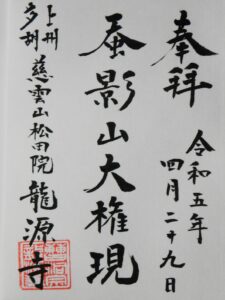 奉拝
令和五年
四月二十九日
蚕影山大権現
上州
多胡
慈雲山松田院
龍源寺